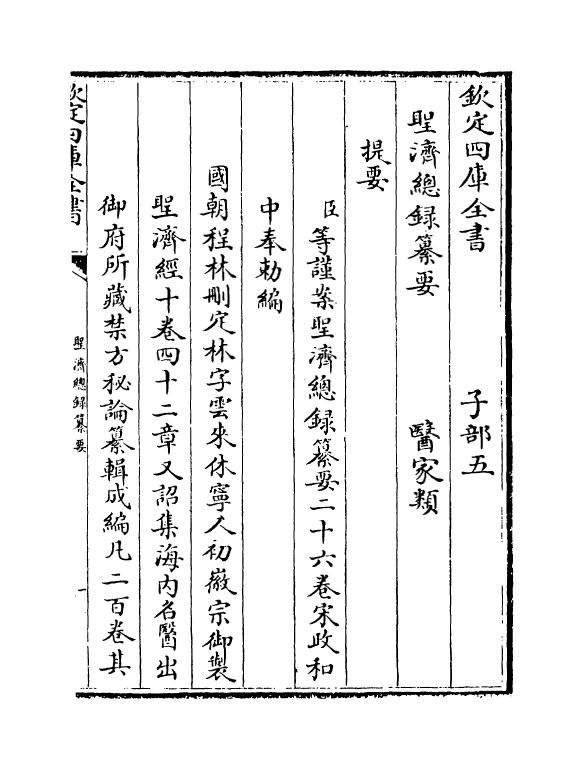 欽定四庫全書　子部五
聖濟總録纂要　醫家類
提要
臣等謹案聖濟總録纂要二十六卷宋政和
中奉勅編
國朝程林刪定林字雲來休寧人初徽宗御製
聖濟經十卷四十二章又詔集海内名醫出
御府所藏禁方秘論纂輯成編凡二百卷其
欽定四庫全書
聖濟總録纂要
一